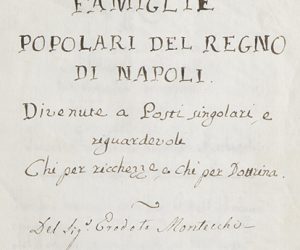 FAMIGLIE
POPOLARI DEL REGNO
DI NAPOLI.
Divenute a Posti singolari, e
riguardevole
Chi per ricchezze, e Chi per Dottrina.
Del Sig.r Erodote Montecchio